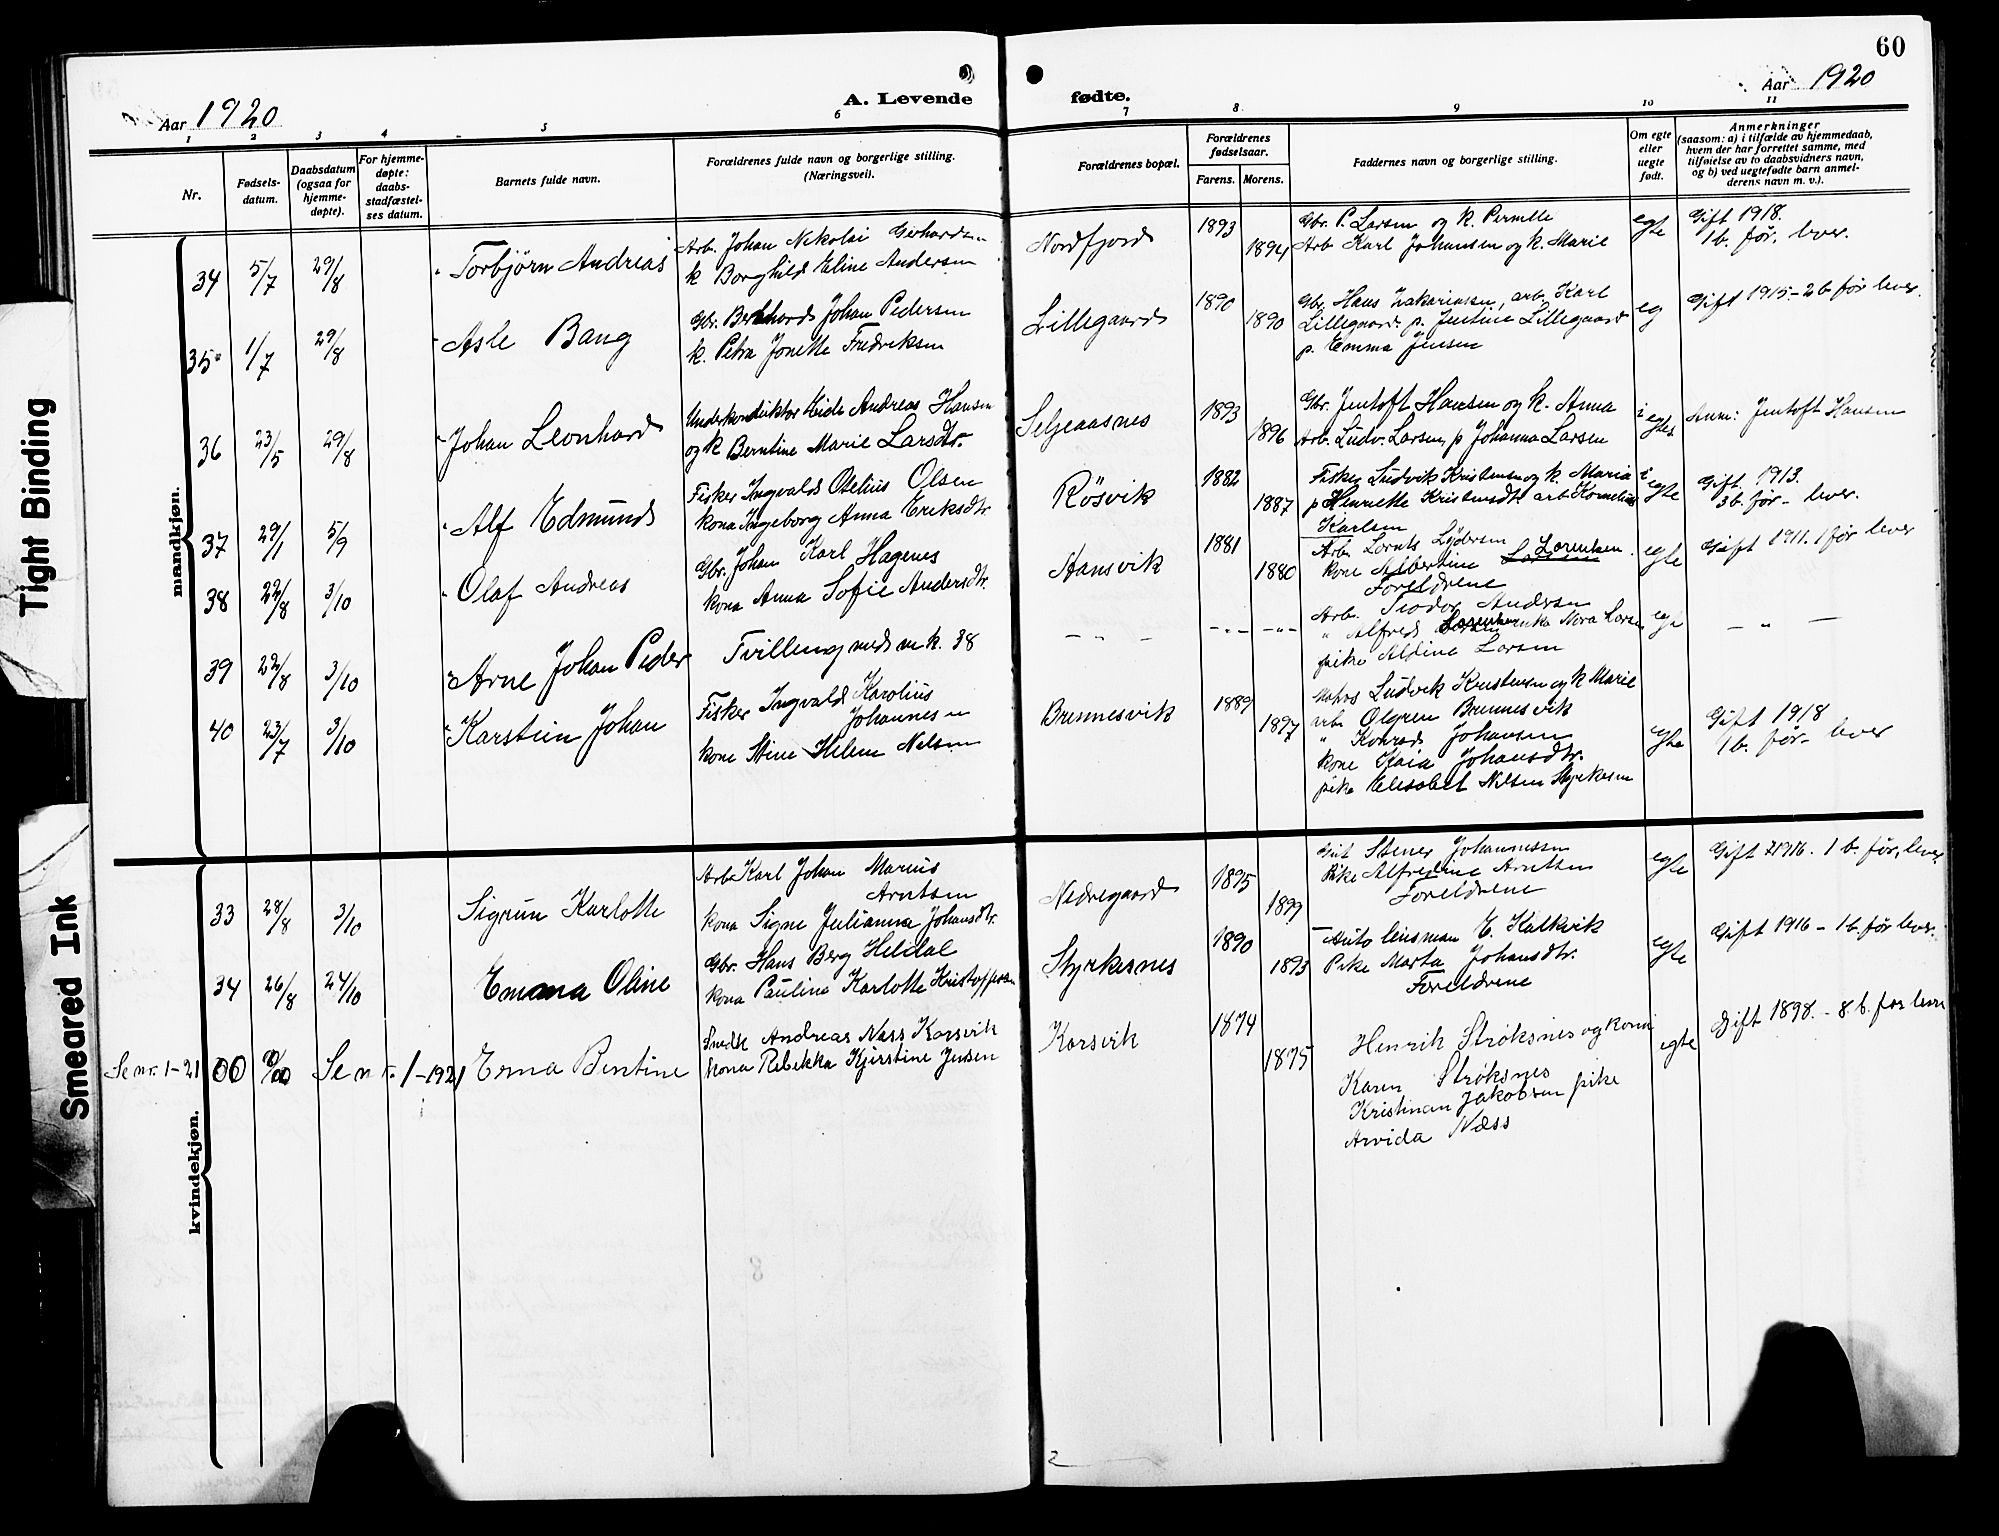 60
Aar 1920
A. Levende
fødte.
Aar 1920
1 2 3 4 5 6 7 8 9 10 11
Nr.
Fødsels-
datum.
Daabsdatum
(ogsaa for
hjemme-
døpte).
For hjemme-
døpte:
daabs-
stadfæstel-
ses datum.
Barnets fulde navn.
Forældrenes fulde navn og borgerlige stilling.
(Næringsvei).
Forældrenes bopæl.
Forældrenes
fødselsaar.
Farens. Morens.
Faddernes navn og borgerlige stilling.
Om egte
eller
uegte
født.
Anmerkninger
(saasom: a) i tilfælde av hjemmedaab,
hvem der har forrettet samme, med
tilføielse av to daabsvidners navn,
og b) ved uegtefødte barn anmel-
derens navn m. v.).
mandkjøn.
34 5/7 29/8 Torbjørn Andreas
Arb. Johan Nikolai Gerhardsen
k Borghild Eline Andersen
Nordfjord
1893
1894
Gbr. P. Larsen og k. Pernille
Arb Karl Johansen og k. Marie
egte
Gift 1918.
1 b. før. lever.
35 1/7 29/8 Asle Bang
Gbr. Bernhard Johan Pedersen
k. Petra Jonette Fredriksen
Lillegaard
1890
1890
Gbr. Hans Zakariassen, arb. Karl
Lillegaard p. Jentine Lillegaard
p. Emma Jensen
eg
Gift 1915 - 2 b før lever.
36 23/5 29/8 Johan Leonhard
Underkonduktør Eide Andreas Hansen
og k Berntine Marie Larsdtr.
Seljeaasnes
1893
1896
Gbr. Jentoft Hansen og k. Anna
Arb. Ludv. Larsen, p Johanna Larsen
i egtes
Anm: Jentoft Hansen
37 29/1 5/9 Alf Edmund
Fisker Ingvald Otelius Olsen
kona Ingeborg Anna Eriksdtr
Røsvik
1882
1887
Fisker Ludvik Kristensen og k. Maria
p Henriette Kristensdtr arb Kornelius
Karlsen
i egte
Gift. 1913.
3 b. før - lever.
38 22/8 3/10 Olaf Andreas
Gbr. Johan Karl Hagenes
kona Anna Sofie Andersdtr.
Hansvik
1881
1880
Arb. Lornts Lydersen
kone Albertine Lorentsen
Foreldrene
egte
Gift 1911. 1 før lever
39 22/8 3/10 Arne Johan Peder
Tvilling med m k. 38
- " - - " - - " -
Arb. Teodor Andersen
" Alfred Nora Larsen
pike Aldine Larsen
egte
- " -
40 23/7 3/10 Karstein Johan
Fisker Ingvald Karolius
Johannesen
kone Stine Helene Nelsen
Brennesvik
1889
1897
Matros Ludvik Kristensen og k Marie
arb. Olgren Brennesvik
" Konrad Johansen
kone Kaia Johansdtr.
pike Elisabet Nilsen Styrkesnes
egte
Gift 1918
1 b. før - lever
kvindekjøn.
33 28/8 3/10 Sigrun Karlotte
Arb Karl Johan Marius
Arntsen
kona Signe Julianna Johansdtr.
Nedregaard
1895
1899
Stener Johannessen
Pike Alfredine Arntsen
Foreldrene
egte
Gift 1916. 1 b. før, lever
34 26/8 24/10 Emma Oline
Gbr. Hans Berg Heldal
kona Pauline Karlotte Kristoffersen
Styrkesnes
1890
1893
E. Kalkvik
Pike Marta Johansdtr.
Foreldrene
egte
Gift 1916 - 1 b. før lever.
Se nr. 1-21 Se nr. 1-1921 Erna Bentine
Smed Andreas Næss Korsvik
kona Rebekka Kjirstine Jensen
Korsvik
1874
1875
Henrik Strøksnes og kona
Karen Strøksnes
Kristinan Jakobsen pike
Arvida Næss
egte
Gift 1898. - 8 b. før lever
Tight Binding
Smeared Ink